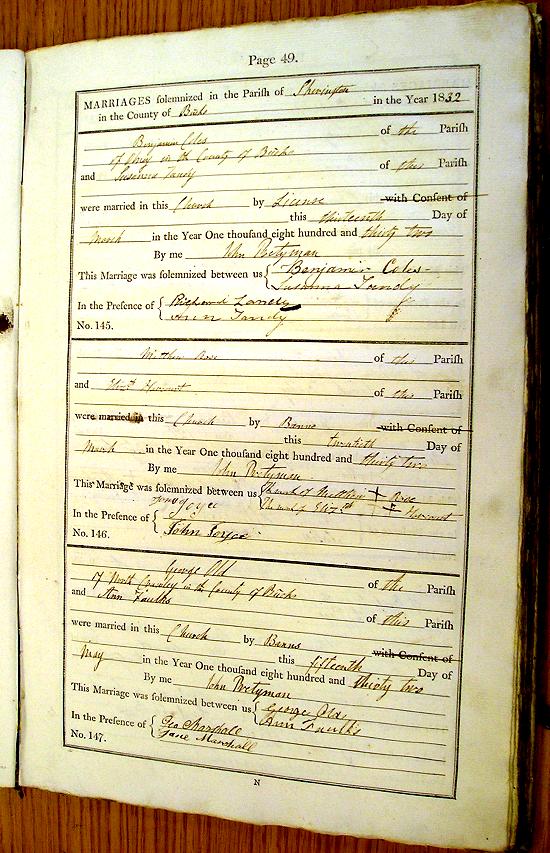 Page 49.
MARRIAGES solemnized in the Parish of Sherington
in the County of Bucks in the Year 1832
Benjamin Coles of the Parish
of Olney in the County of Bucks
and Susanna Tandy of this Parish
were married in this Church by License with Consent of
this thirteenth Day of
March in the Year One thousand eight hundred and thirty two
By me John Pretyman
This Marriage was solemnized between us { Benjamin Coles
Susanna Tandy
In the Presence of { Richard Tandy
Ann Tandy
No. 145.
Matthew Rose of this Parish
and Elizth of this Parish
were married in this Church by Banns with Consent of
this twentieth Day of
March in the Year One thousand eight hundred and thirty two
By me John Pretyman
This Marriage was solemnized between us { The mark of Matthew + Rose
The mark of Elizth +
Joyce
In the Presence of { John Joyce
No. 146.
George Old of the Parish
of North Crawley in the County of Bucks
and Ann Faulks of this Parish
were married in this Church by Banns with Consent of
this fifteenth Day of
May in the Year One thousand eight hundred and thirty two
By me John Pretyman
This Marriage was solemnized between us { George Old
Ann Faulks
In the Presence of { Geo Marshall
Jane Marshall
No. 147.
N